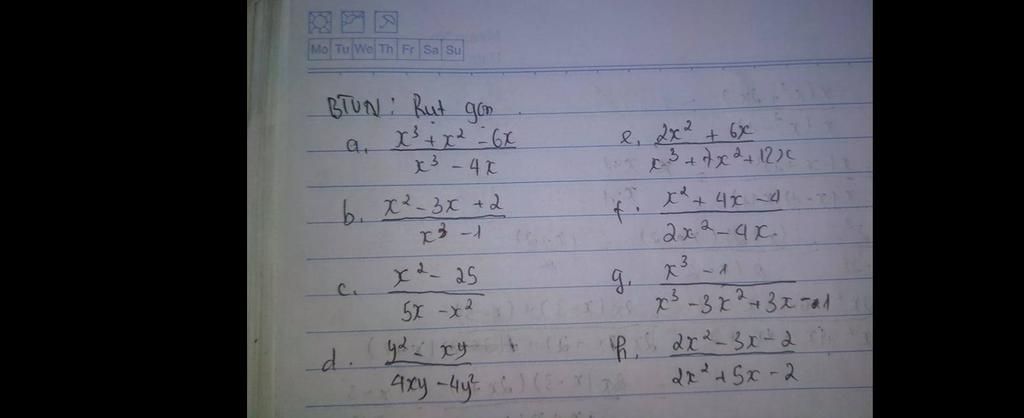 Mo Tu We Th Fr Sa Su
BTVN: Rut gon
a. (x³ + x² - 6x)/(x³ - 4x)
e. (2x² + 6x)/(x³ + 7x² + 12x)
b. (x² - 3x + 2)/(x³ - 1)
f. (x² + 4x - 4)/(2x² - 4x)
c. (x² - 25)/(5x - x²)
g. (x³ - 1)/(x³ - 3x² + 3x - 1)
d. (y² - xy)/(4xy - 4y²)
h. (2x² - 3x - 2)/(2x² + 5x - 2)